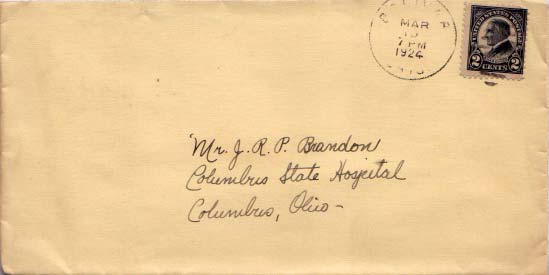 MAR
7 PM
1924
OHIO
UNITED STATES POSTAGE
2 CENTS 2
Mr. J. R. P. Brandon
Columbus State Hospital
Columbus, Ohio -